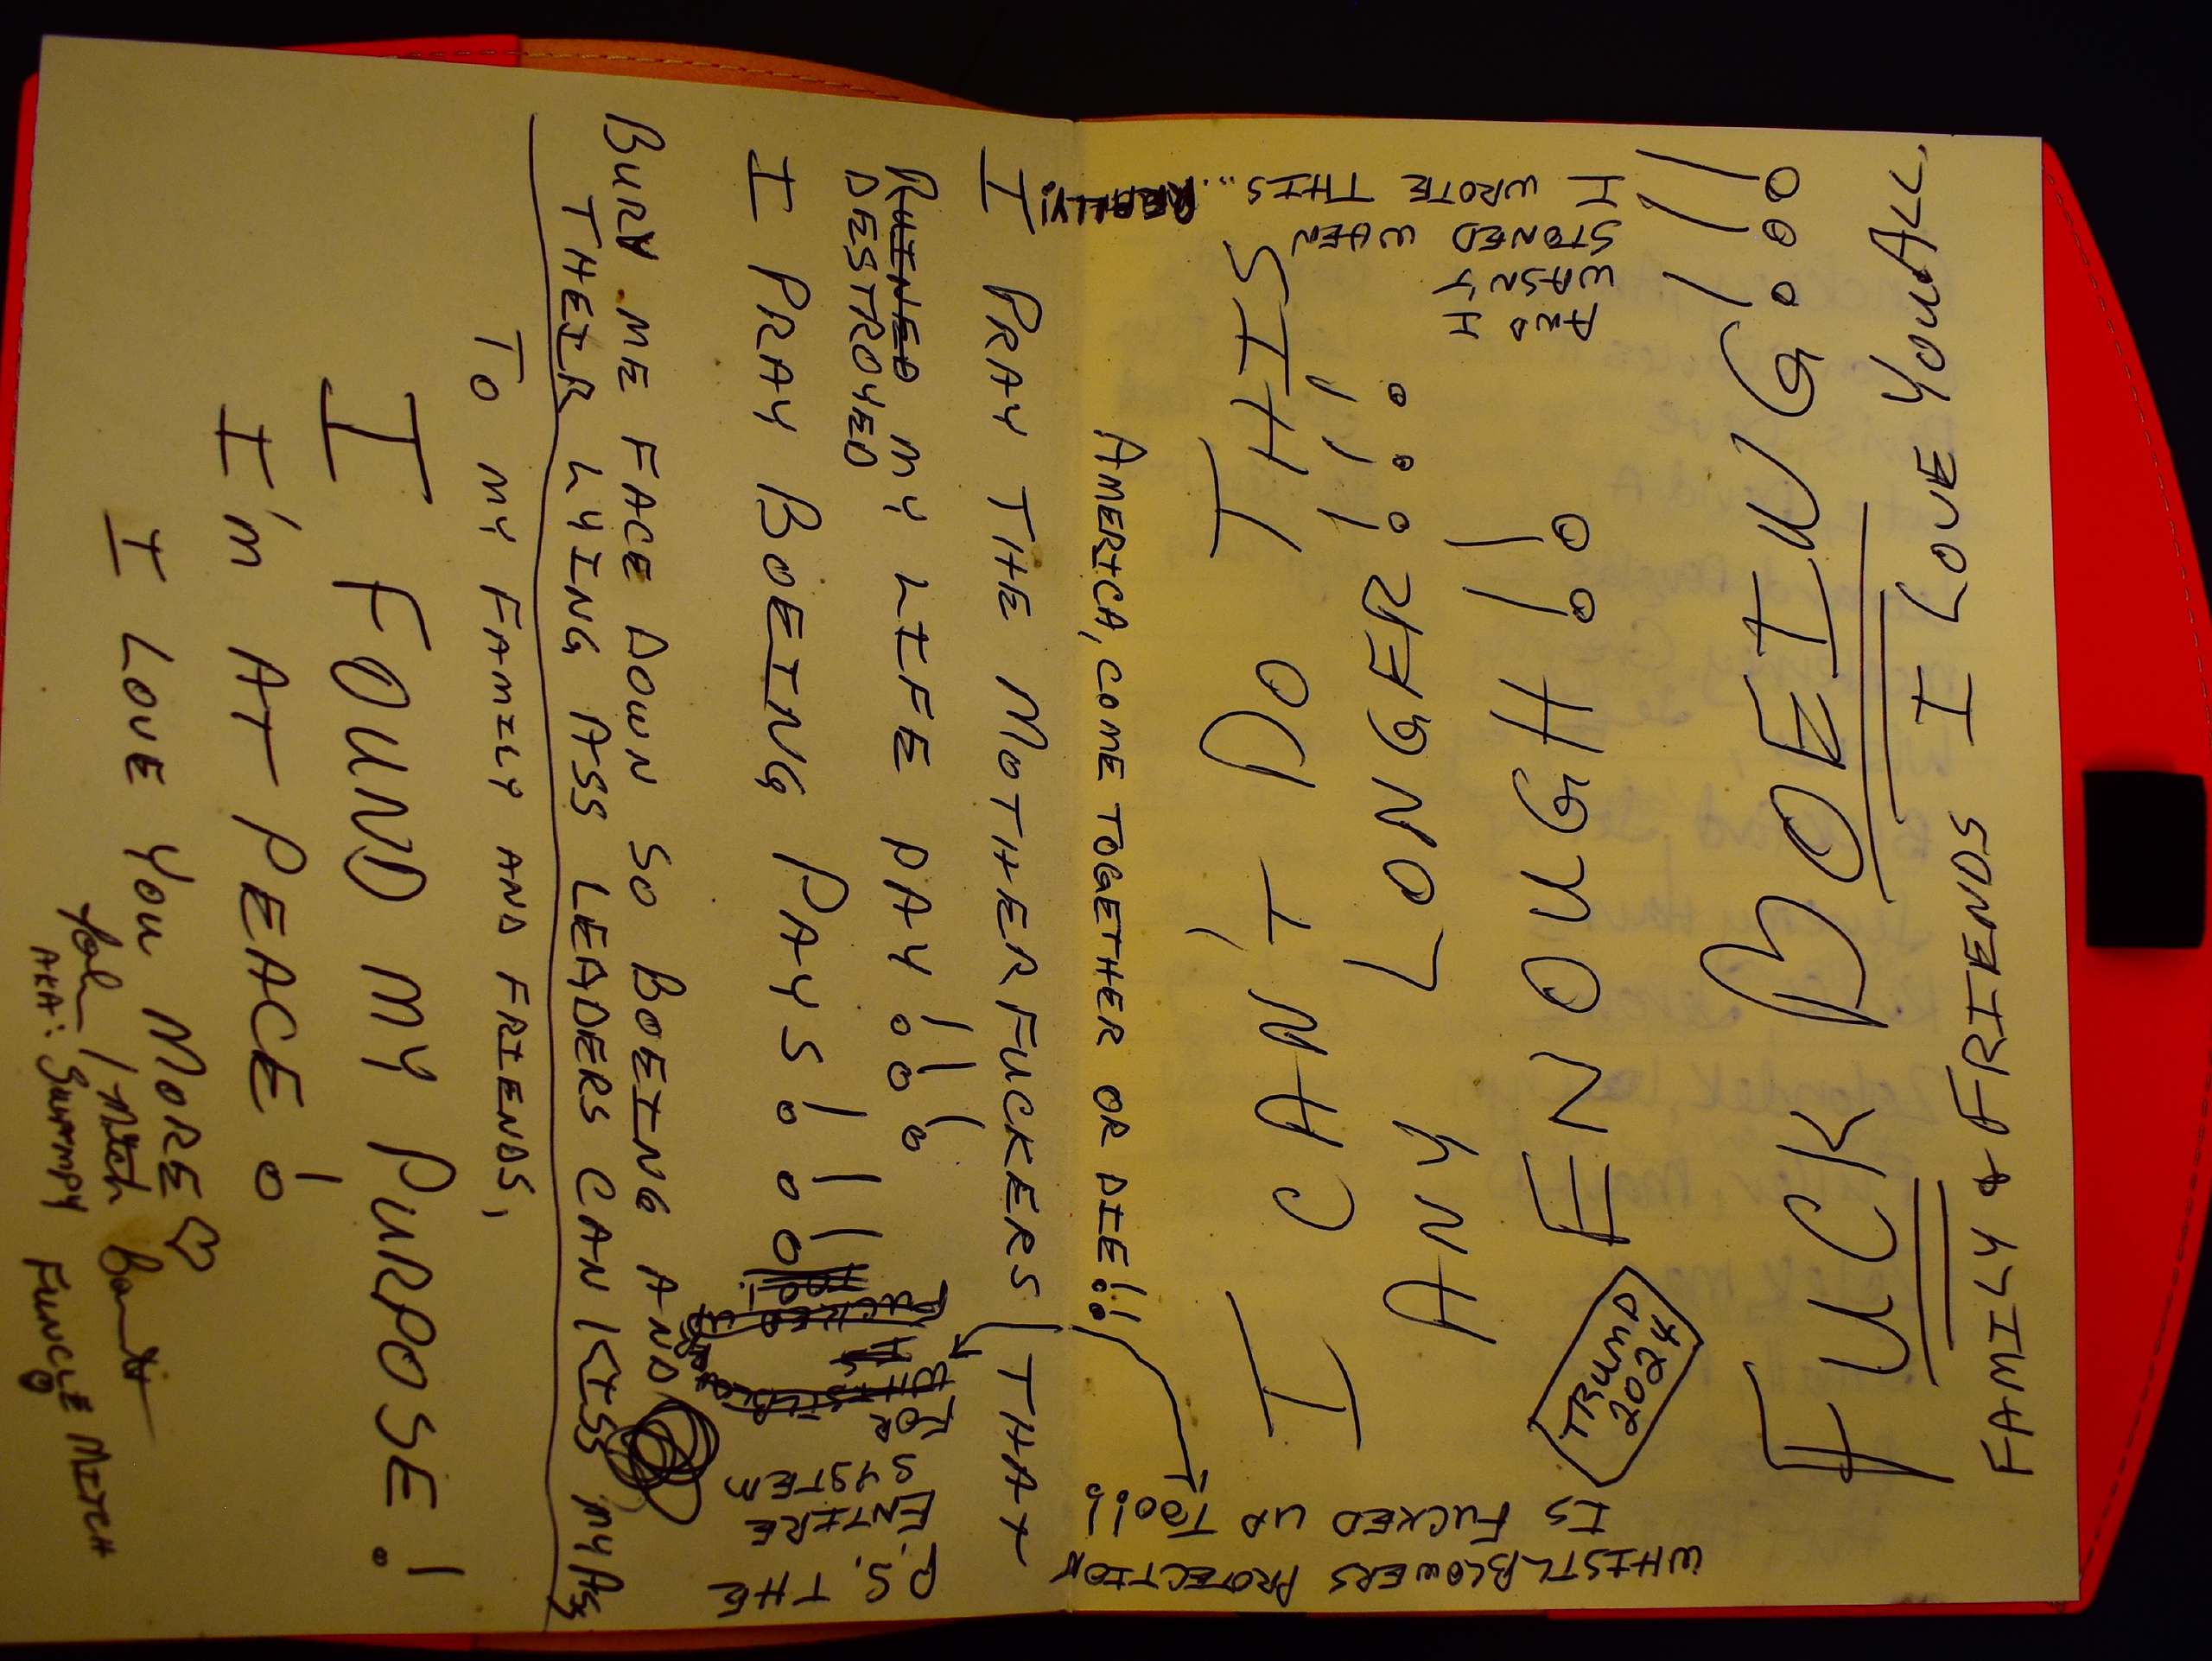 FAMILY & FRIENDS I LOVE YOU ALL.
FUCK BOEING!!!
TRUMP
2024
ENOUGH!!
ANY LONGER!!!
I CAN'T DO THIS
AND I
WASN'T
STONED WHEN
I WROTE THIS... REALLY!
AMERICA, COME TOGETHER OR DIE!!
I PRAY THE MOTHERFUCKERS THAT
RUINED MY LIFE PAY!!!
DESTROYED
I PRAY BOEING PAYS!!!
BURY ME FACE DOWN SO BOEING AND
THEIR LYING ASS LEADERS CAN KISS MY ASS
P.S. THE
ENTIRE
SYSTEM
FOR
WHISTLBLOWERS PROTECTION
IS FUCKED UP TOO!!
TO MY FAMILY AND FRIENDS,
I FOUND MY PURPOSE!
I'M AT PEACE!
I LOVE YOU MORE
Mitch
AKA: Swampy FUNCLE MITCH